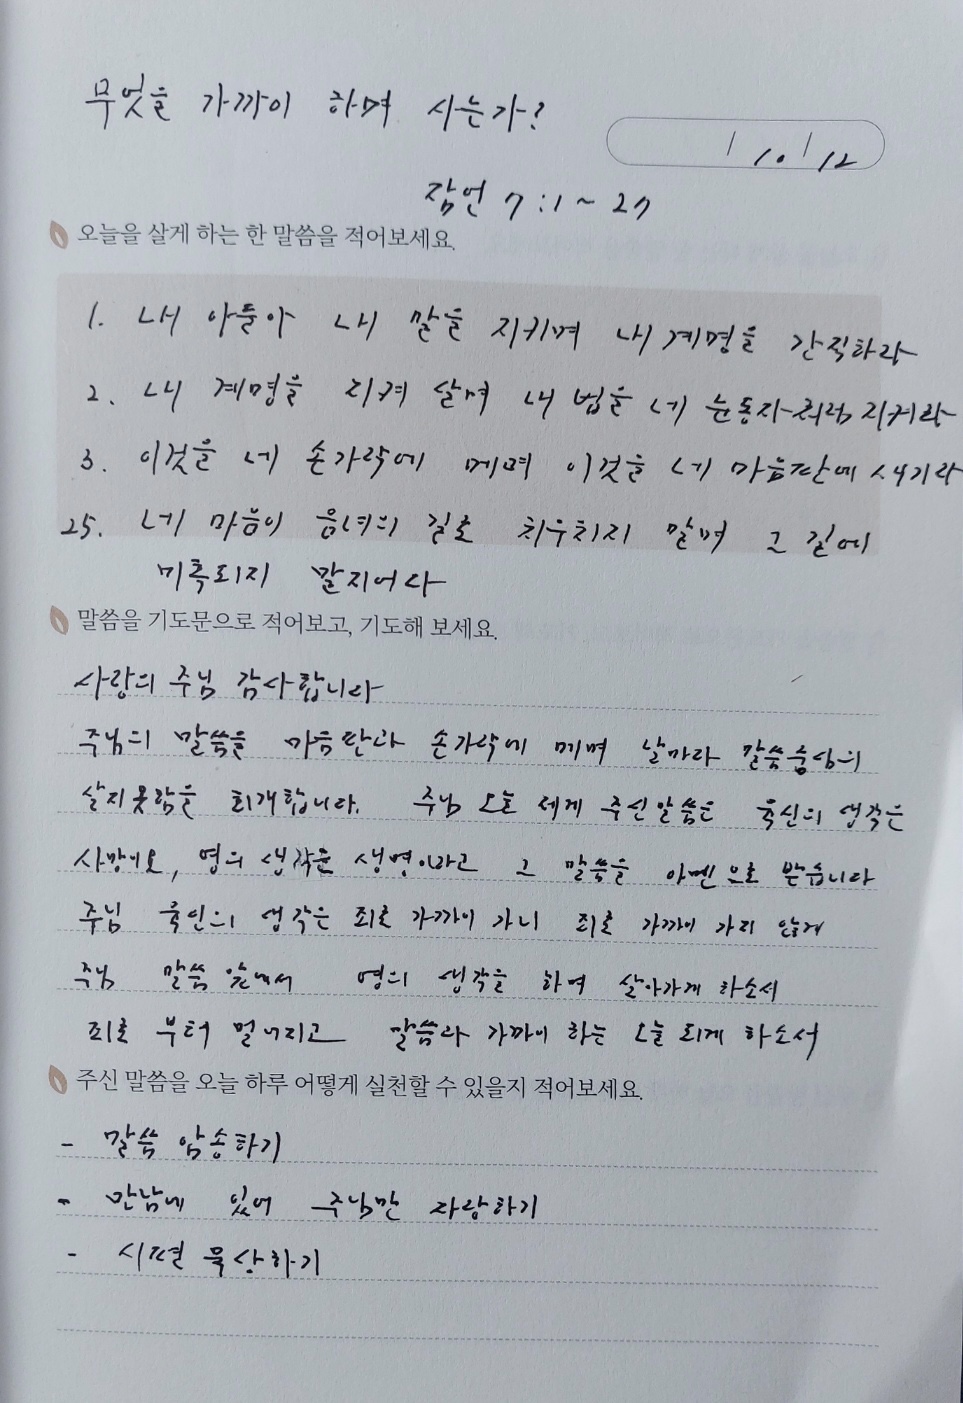 무엇을 가까이 하며 사는가?
/ 10 / 12
잠언 7:1~27
오늘을 살게 하는 한 말씀을 적어보세요.
1. 내 아들아 내 말을 지키며 내 계명을 간직하라
2. 내 계명을 지켜 살며 내 법을 네 눈동자처럼 지키라
3. 이것을 네 손가락에 메며 이것을 네 마음판에 새기라
25. 네 마음이 음녀의 길로 치우치지 말며 그 길에
미혹되지 말지어다
말씀을 기도문으로 적어보고, 기도해 보세요.
사랑의 주님 감사합니다
주님의 말씀을 마음판과 손가락에 메며 날마다 말씀중심의
살지못함을 회개합니다. 주님 오늘 제게 주신말씀은 육신의 생각은
사망이요, 영의 생각은 생명이라고 그 말씀을 아멘으로 받습니다
주님 육인의 생각은 죄로 가까이 가니 죄로 가까이 가지 않게
주님 말씀 앞에서 영의 생각을 하며 살아가게 하소서
죄로 부터 멀어지고 말씀과 가까이 하는 오늘 되게 하소서
주신 말씀을 오늘 하루 어떻게 실천할 수 있을지 적어보세요.
- 말씀 암송하기
- 만남에 있어 주님만 자랑하기
- 시편 묵상하기